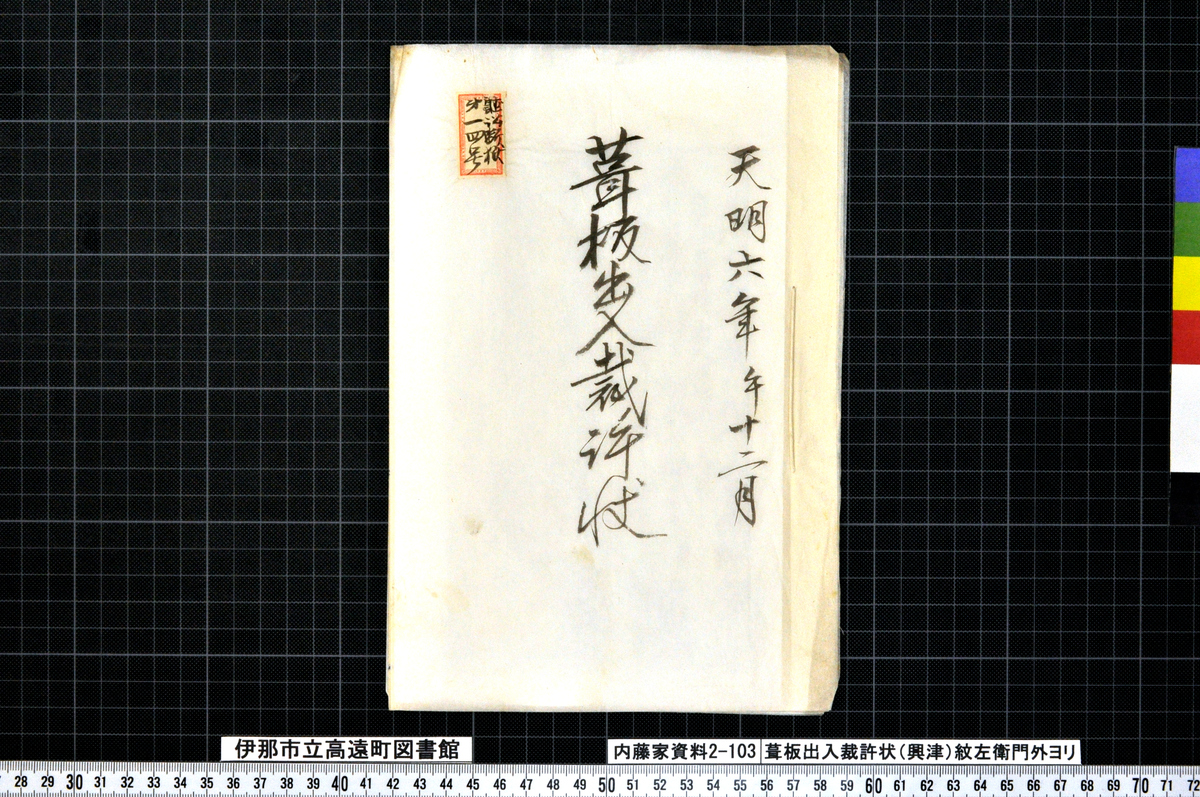 天明六年午十二月
葺板出入裁許状
聴訟断獄
才一四号
伊那市立高遠町図書館
内藤家資料2-103
葺板出入裁許状(興津)紋左衛門外ヨリ
28 29 30 31 32 33 34 35 36 37 38 39 40 41 42 43 44 45 46 47 48 49 50 51 52 53 54 55 56 57 58 59 60 61 62 63 64 65 66 67 68 69 70 71